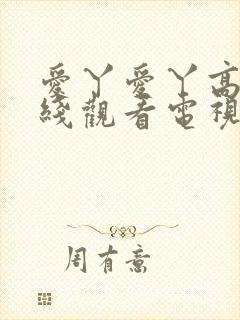 愛丫愛丫高
綫觀看電視
周有意